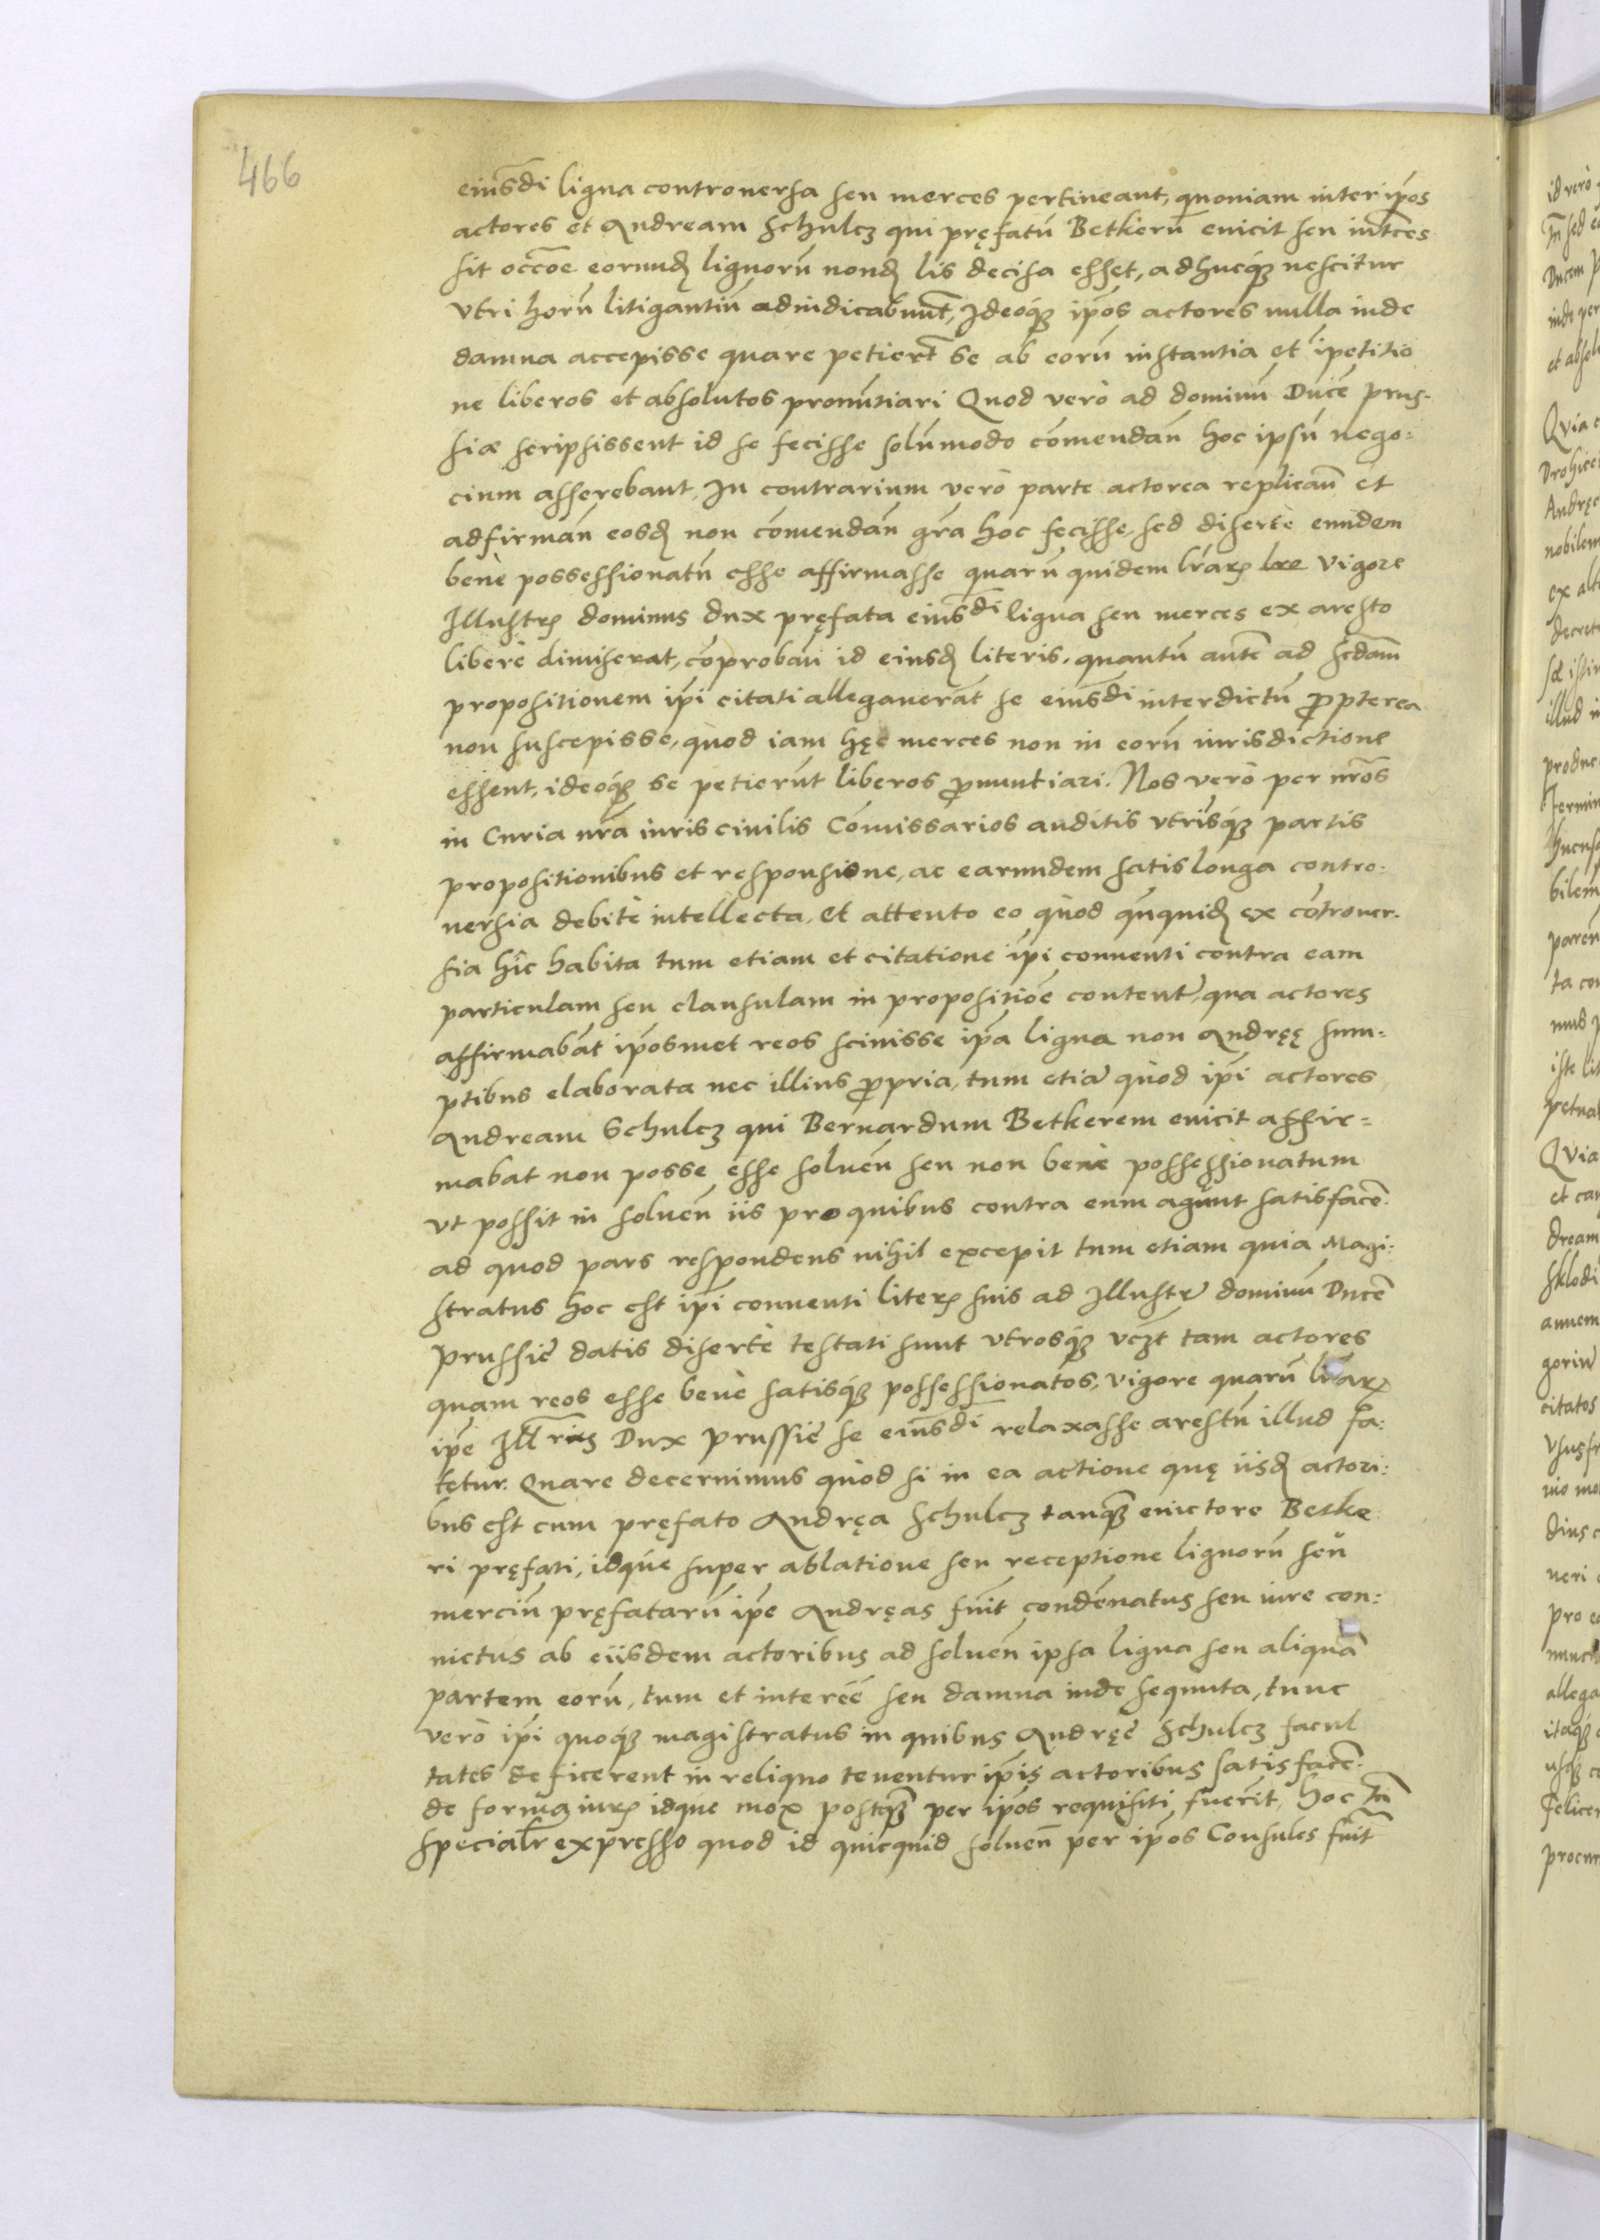 466
eiusdi ligna controuersa seu merces pertineant, quoniam inter ipos
actores et Andream Schulcz qui pręfatu Betkeru euicit seu
sit occoe eorund lignoru nond lis decisa esset, adhucq nescitur
vtri horu litigantiu adiudicabunt, Ideoq ipos actores nulla inde
damna accepisse quare petiert se ab eoru instantia et ipetitio
ne liberos et absolutos pronuntiari Quod verò ad dominu Duce Prus-
siæ scripsissent id se fecisse solumodo comendan hoc ipsu nego:
cium asserebant, In contrarium verò parte actorea replican et
adfirman eosd non comendan gra hoc fecisse, sed disertè eundem
benè possessionatu esse affirmasse quaru quidem lrar vigore
Illustr dominus dux pręfata eiusdi ligna seu merces ex aresto
liberè dimiserat, coproban id eiusd literis. quantu aute ad scdam
propositionem ipi citati allegauerat se eiusdi interdictu propterea
non suscepisse, quòd iam hęc merces non in eoru iurisdictione
essent, ideoq se petierut liberos pronuntiari. Nos verò per nros
in Curia nra iuris ciuilis Comissarios auditis vtrisq partis
propositionibus et responsione, ac earundem satis longa contro:
uersia debitè intellecta, et attento eo quòd ququid ex cotrouer-
sia hic habita tum etiam et citatione ipi conuenti contra eam
particulam seu clausulam in propositioe content, qua actores
affirmabat iposmet reos sciuisse ipa ligna non Andręę sum-
ptibus elaborata nec illius propria, tum etia quòd ipi actores
Andream Schulcz qui Bernardum Betkerem euicit affir=
mabat non posse esse soluen seu non benè possessionatum
vt possit in soluen iis pro quibus contra eum agunt satisface:
ad quod pars respondens nihil excepit tum etiam quia Magi:
stratus hoc est ipi conuenti liter suis ad Illustr dominu Duce
Prussie datis disertè testati sunt vtrosq vczt tam actores
quam reos esse benè satisq possessionatos, vigore quaru lrar
ipe Illris Dux Prussie se eiusdi relaxasse arestu illud fa:
tetur. Quare decernimus quòd si in ea actione quę iisd actori:
bus est cum pręfato Andręa Schulcz tanq euictore Betke
ri pręfati, idque super ablatione seu receptione lignoru seu
merciu pręfataru ipe Andręas fuit condenatus seu iure con:
uictus ab eiisdem actoribus ad soluen ipsa ligna seu aliqua
partem eoru, tum et interee seu damna inde sequuta, tunc
verò ipi quoq magistratus in quibus Andręe Schulcz facul
tates deficerent in reliquo tenentur ipis actoribus satisface:
de forma iur idque mox postq per ipos requisiti fuerit, hoc tn
specialr expresso quod id quicquid soluen per ipos Consules fuit